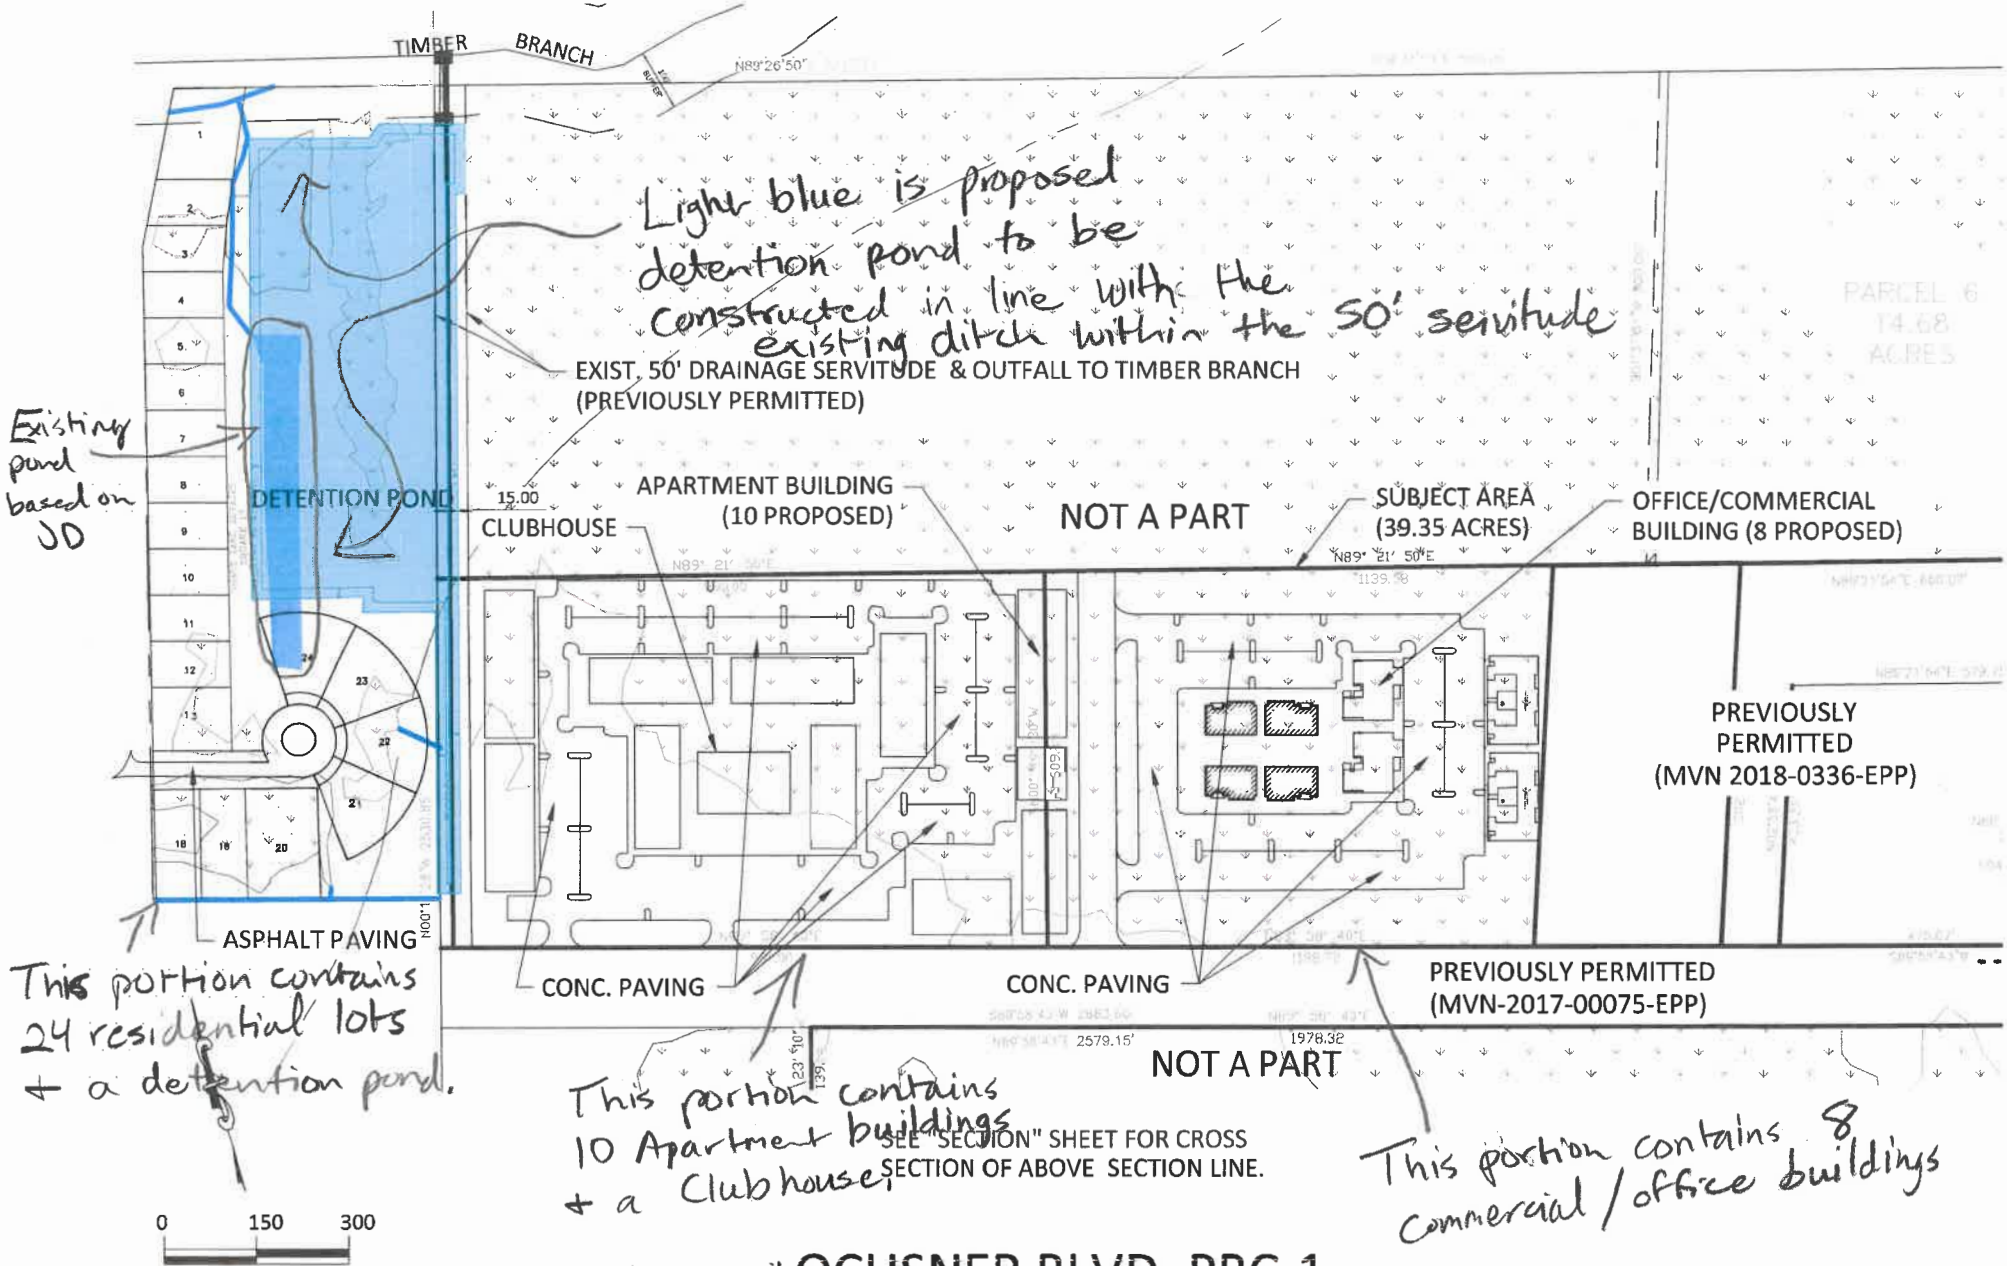 TIMBER BRANCH
N89°26'50"
Light blue is proposed
detention pond to be
constructed in line with the
existing ditch within the 50' servitude
EXIST. 50' DRAINAGE SERVITUDE & OUTFALL TO TIMBER BRANCH
(PREVIOUSLY PERMITTED)
PARCEL 6
14.68
ACRES
Existing
pond
based on
JD
1
2
3
4
5
6
7
8
9
10
11
12
13
18
19
20
21
22
23
24
DETENTION POND
15.00
CLUBHOUSE
APARTMENT BUILDING
(10 PROPOSED)
NOT A PART
SUBJECT AREA
(39.35 ACRES)
OFFICE/COMMERCIAL
BUILDING (8 PROPOSED)
N89° 21' 50"E
N89° 21' 50"E
1139.58
PREVIOUSLY
PERMITTED
(MVN 2018-0336-EPP)
ASPHALT PAVING
CONC. PAVING
CONC. PAVING
PREVIOUSLY PERMITTED
(MVN-2017-00075-EPP)
This portion contains
24 residential lots
+ a detention pond.
2579.15'
1978.32
NOT A PART
This portion contains
10 Apartment buildings
+ a Clubhouse.
SEE "SECTION" SHEET FOR CROSS
SECTION OF ABOVE SECTION LINE.
This portion contains 8
commercial/office buildings
0 150 300
OCHSNER BLVD. PRC-1